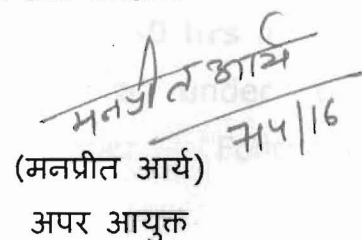 मनप्रीत आर्य
7/4/16
(मनप्रीत आर्य)
अपर आयुक्त